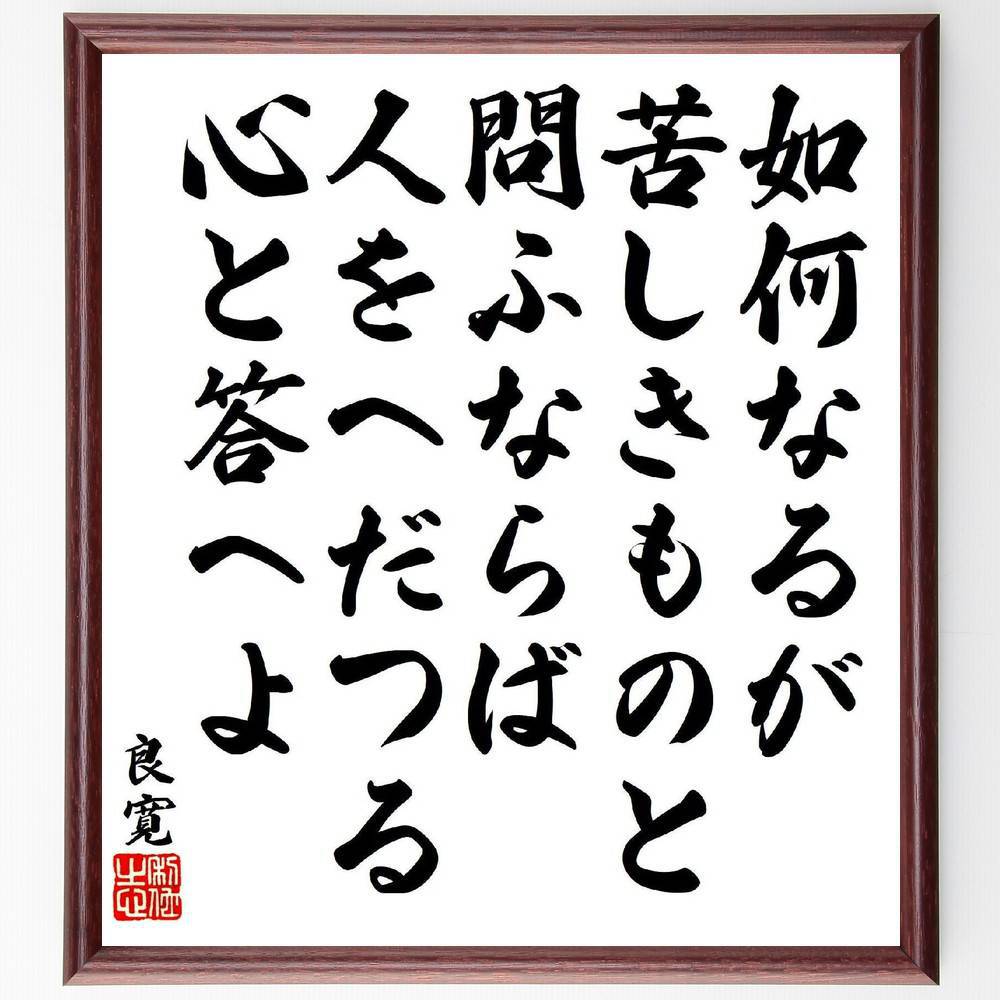 如何なるが
苦しきものと
問ふならば
人をへだつる
心と答へよ
良寛